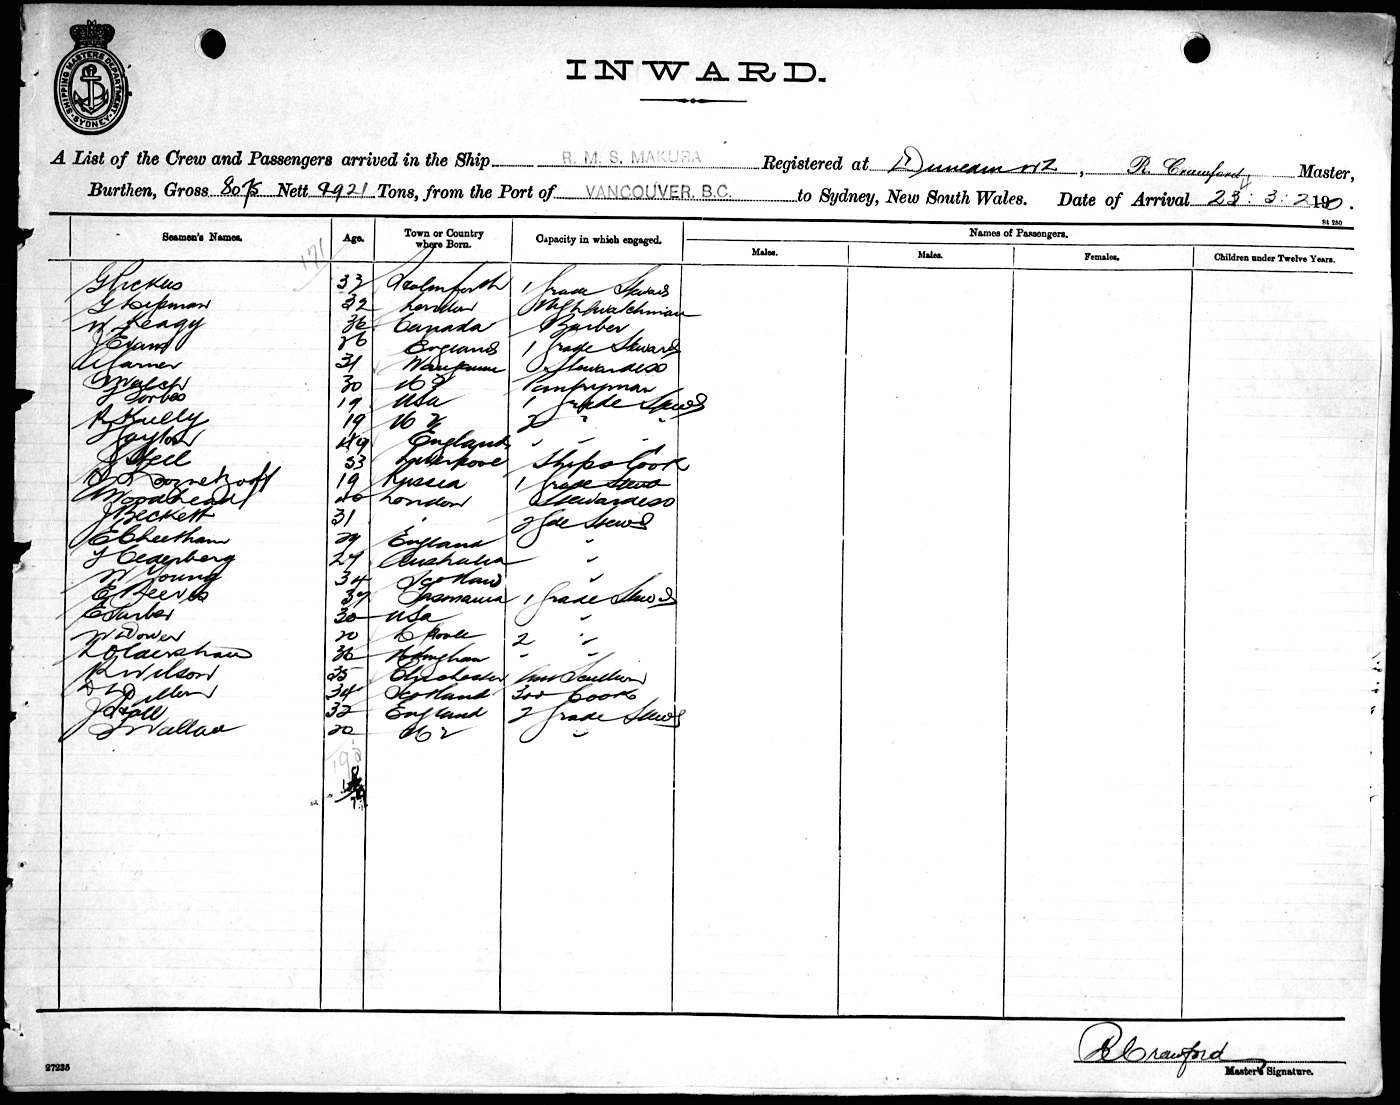 SHIPPING MASTERS DEPARTMENT SYDNEY
INWARD.
A List of the Crew and Passengers arrived in the Ship R. M. S. MAKURA Registered at Dunedin NZ, R. Crawford Master,
Burthen, Gross 8075 Nett 4921 Tons, from the Port of VANCOUVER. B.C. to Sydney, New South Wales. Date of Arrival 3
S4 250
Seamen's Names. Age. Town or Country where Born. Capacity in which engaged. Names of Passengers.
Males. Males. Females. Children under Twelve Years.
171
33 1 Grade Steward
G Chipman 32 London Nightwatchman
W Keagy 36 Canada Barber
J Evans 26 England 1 Grade Steward
31 Stewardess
Walsh 30 NZ Pantryman
Forbes 19 USA 1 Grade Stewd
R Kelly 19 NZ 2 " "
Taylor 49 England " " "
J Steil 33 Liverpool Ships Cook
19 Russia 1 Grade Stewd
Woodhead 40 London Stewardess
J Beckett 31 " 2 Gde Stewd
E Cheetham 29 England "
Hedenberg 27 Australia "
W Young 34 Scotland "
E Reeves 37 Tasmania 1 Grade Stewd
E Turber 30 USA "
W Dower 20 2 "
36 " "
R Wilson 35 Chichester
34 Scotland 3rd Cook
J Hall 32 England 2 Grade Stewd
Wallace 20 NZ "
R Crawford
Master's Signature.
27235